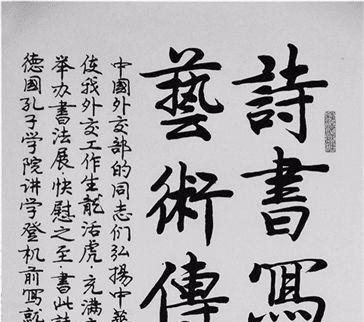 詩書寫
藝術傳
中國外交部的同志们弘揚中
使我外交工作生龍活虎·充满
举办書法展·快慰之至·書此詩
德國孔子学院讲学登机前寫就